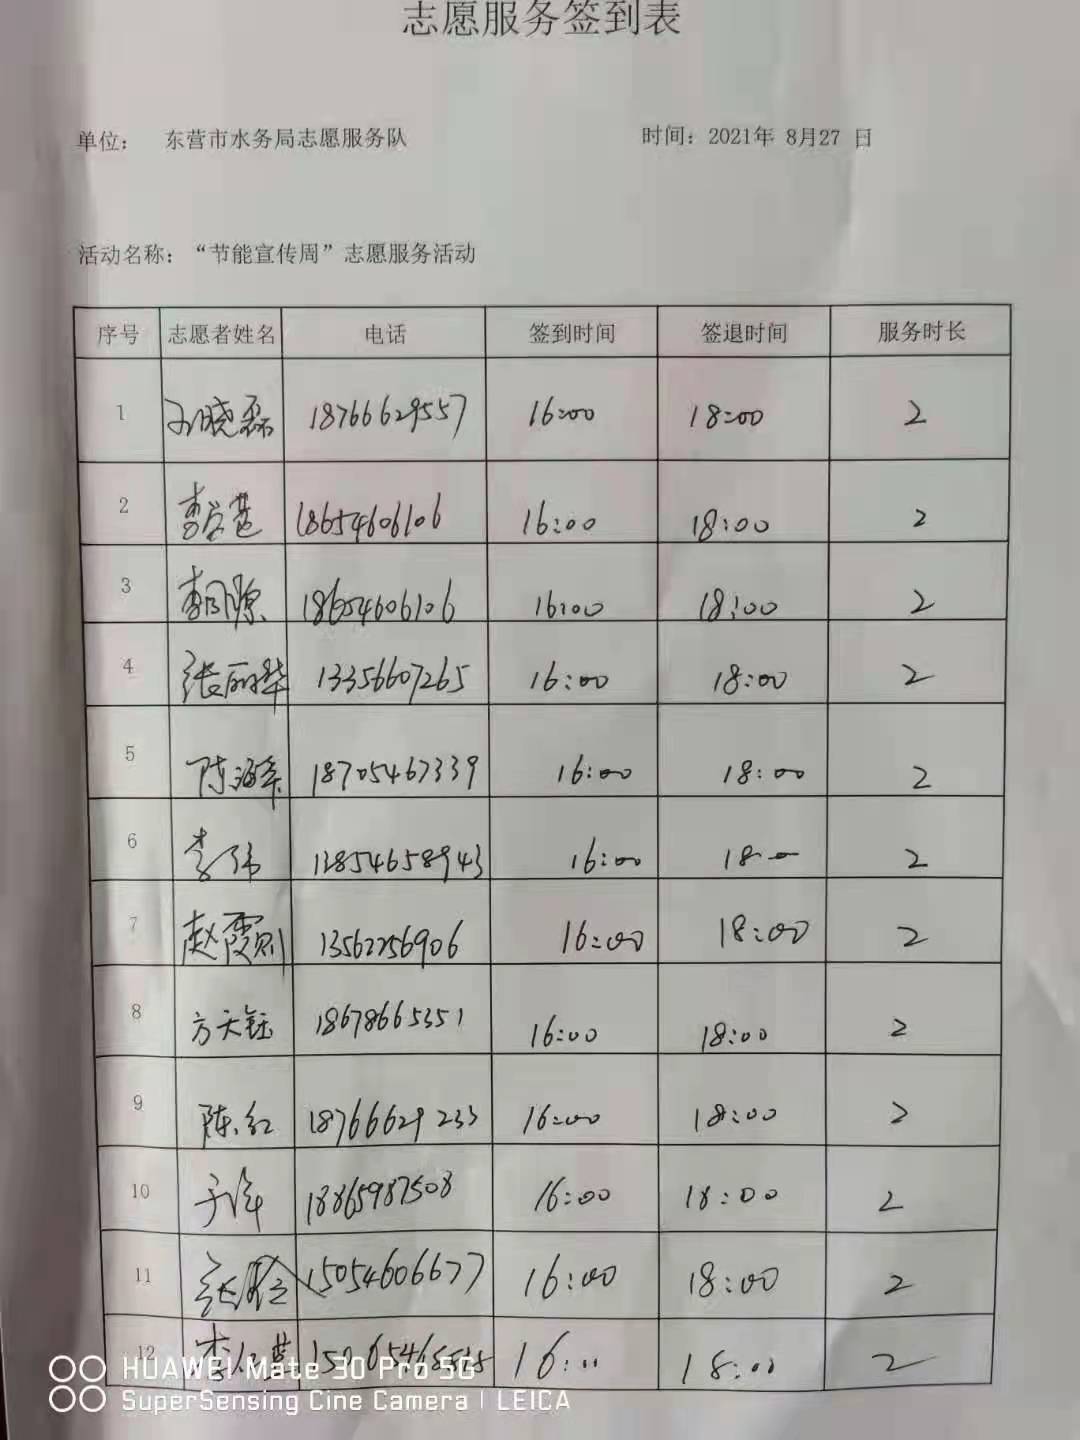 志愿服务签到表
单位： 东营市水务局志愿服务队 时间：2021年 8月27 日
活动名称：“节能宣传周”志愿服务活动
序号 志愿者姓名 电话 签到时间 签退时间 服务时长
1 孙晓磊 18766629557 16:00 18:00 2
2 18654606106 16:00 18:00 2
3 18654606106 16:00 18:00 2
4 张丽华 13356607265 16:00 18:00 2
5 18705467339 16:00 18:00 2
6 李伟 13854658943 16:00 18:00 2
7 赵霞 13562256906 16:00 18:00 2
8 方天钰 18678665351 16:00 18:00 2
9 陈红 18766629233 16:00 18:00 2
10 于洋 18865987508 16:00 18:00 2
11 15054606677 16:00 18:00 2
12 16:00 18:00 2
HUAWEI Mate 30 Pro 5G
SuperSensing Cine Camera | LEICA